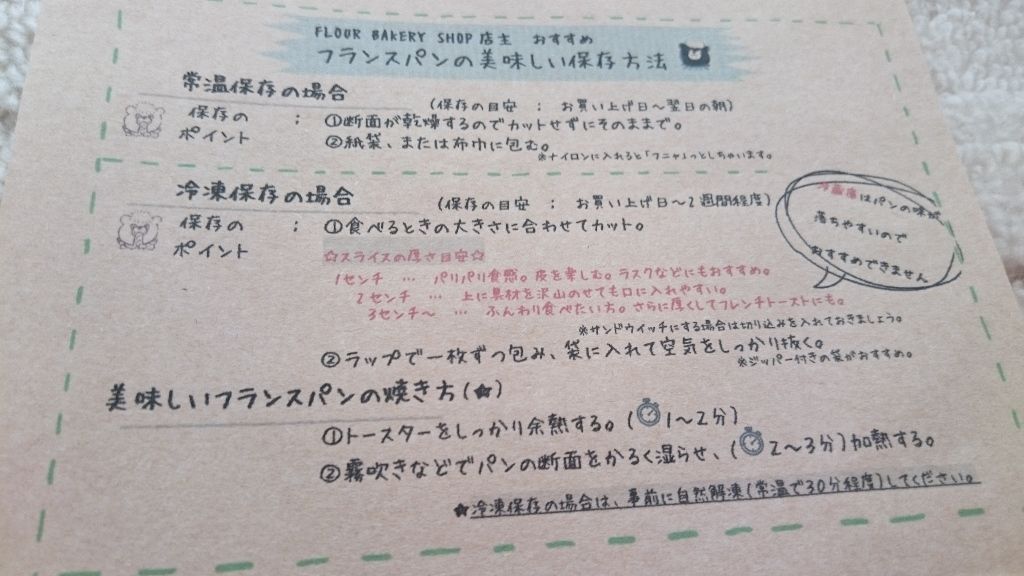 FLOUR BAKERY SHOP 店主 おすすめ
フランスパンの美味しい保存方法
常温保存の場合
(保存の目安 : お買い上げ日~翌日の朝)
保存の : ①断面が乾燥するのでカットせずにそのままで。
ポイント ②紙袋、または布巾に包む。
※ナイロンに入れると「フニャ」っとしちゃいます。
冷凍保存の場合
(保存の目安 : お買い上げ日~2週間程度)
保存の : ①食べるときの大きさに合わせてカット。
ポイント
☆スライスの厚さ目安☆
1センチ … パリパリ食感。皮を楽しむ。ラスクなどにもおすすめ。
2センチ … 上に具材を沢山のせても口に入れやすい。
3センチ~ … ふんわり食べたい方。さらに厚くしてフレンチトーストにも。
※サンドウイッチにする場合は切り込みを入れておきましょう。
②ラップで一枚ずつ包み、袋に入れて空気をしっかり抜く。
※ジッパー付きの袋がおすすめ。
冷蔵庫はパンの味が
落ちやすいので
おすすめできません
美味しいフランスパンの焼き方(★)
①トースターをしっかり余熱する。(1~2分)
②霧吹きなどでパンの断面をかるく湿らせ、(2~3分)加熱する。
★冷凍保存の場合は、事前に自然解凍(常温で30分程度)してください。